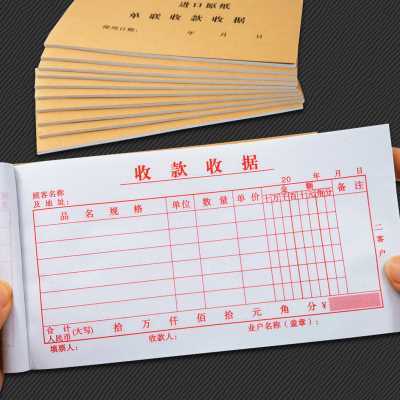 进口原纸
单联收款收据
使用日期： 年 月 日
收款收据
顾客名称
及 地 址：
20 年 月 日
品 名 规 格 单位 数 量 单 价 金 额 备 注
十万千百十元角分
合 计
人民币
(大写) 拾 万 仟 佰 拾 元 角 分 ￥
填票人： 收款人： 业户名称（盖章）：
二客户